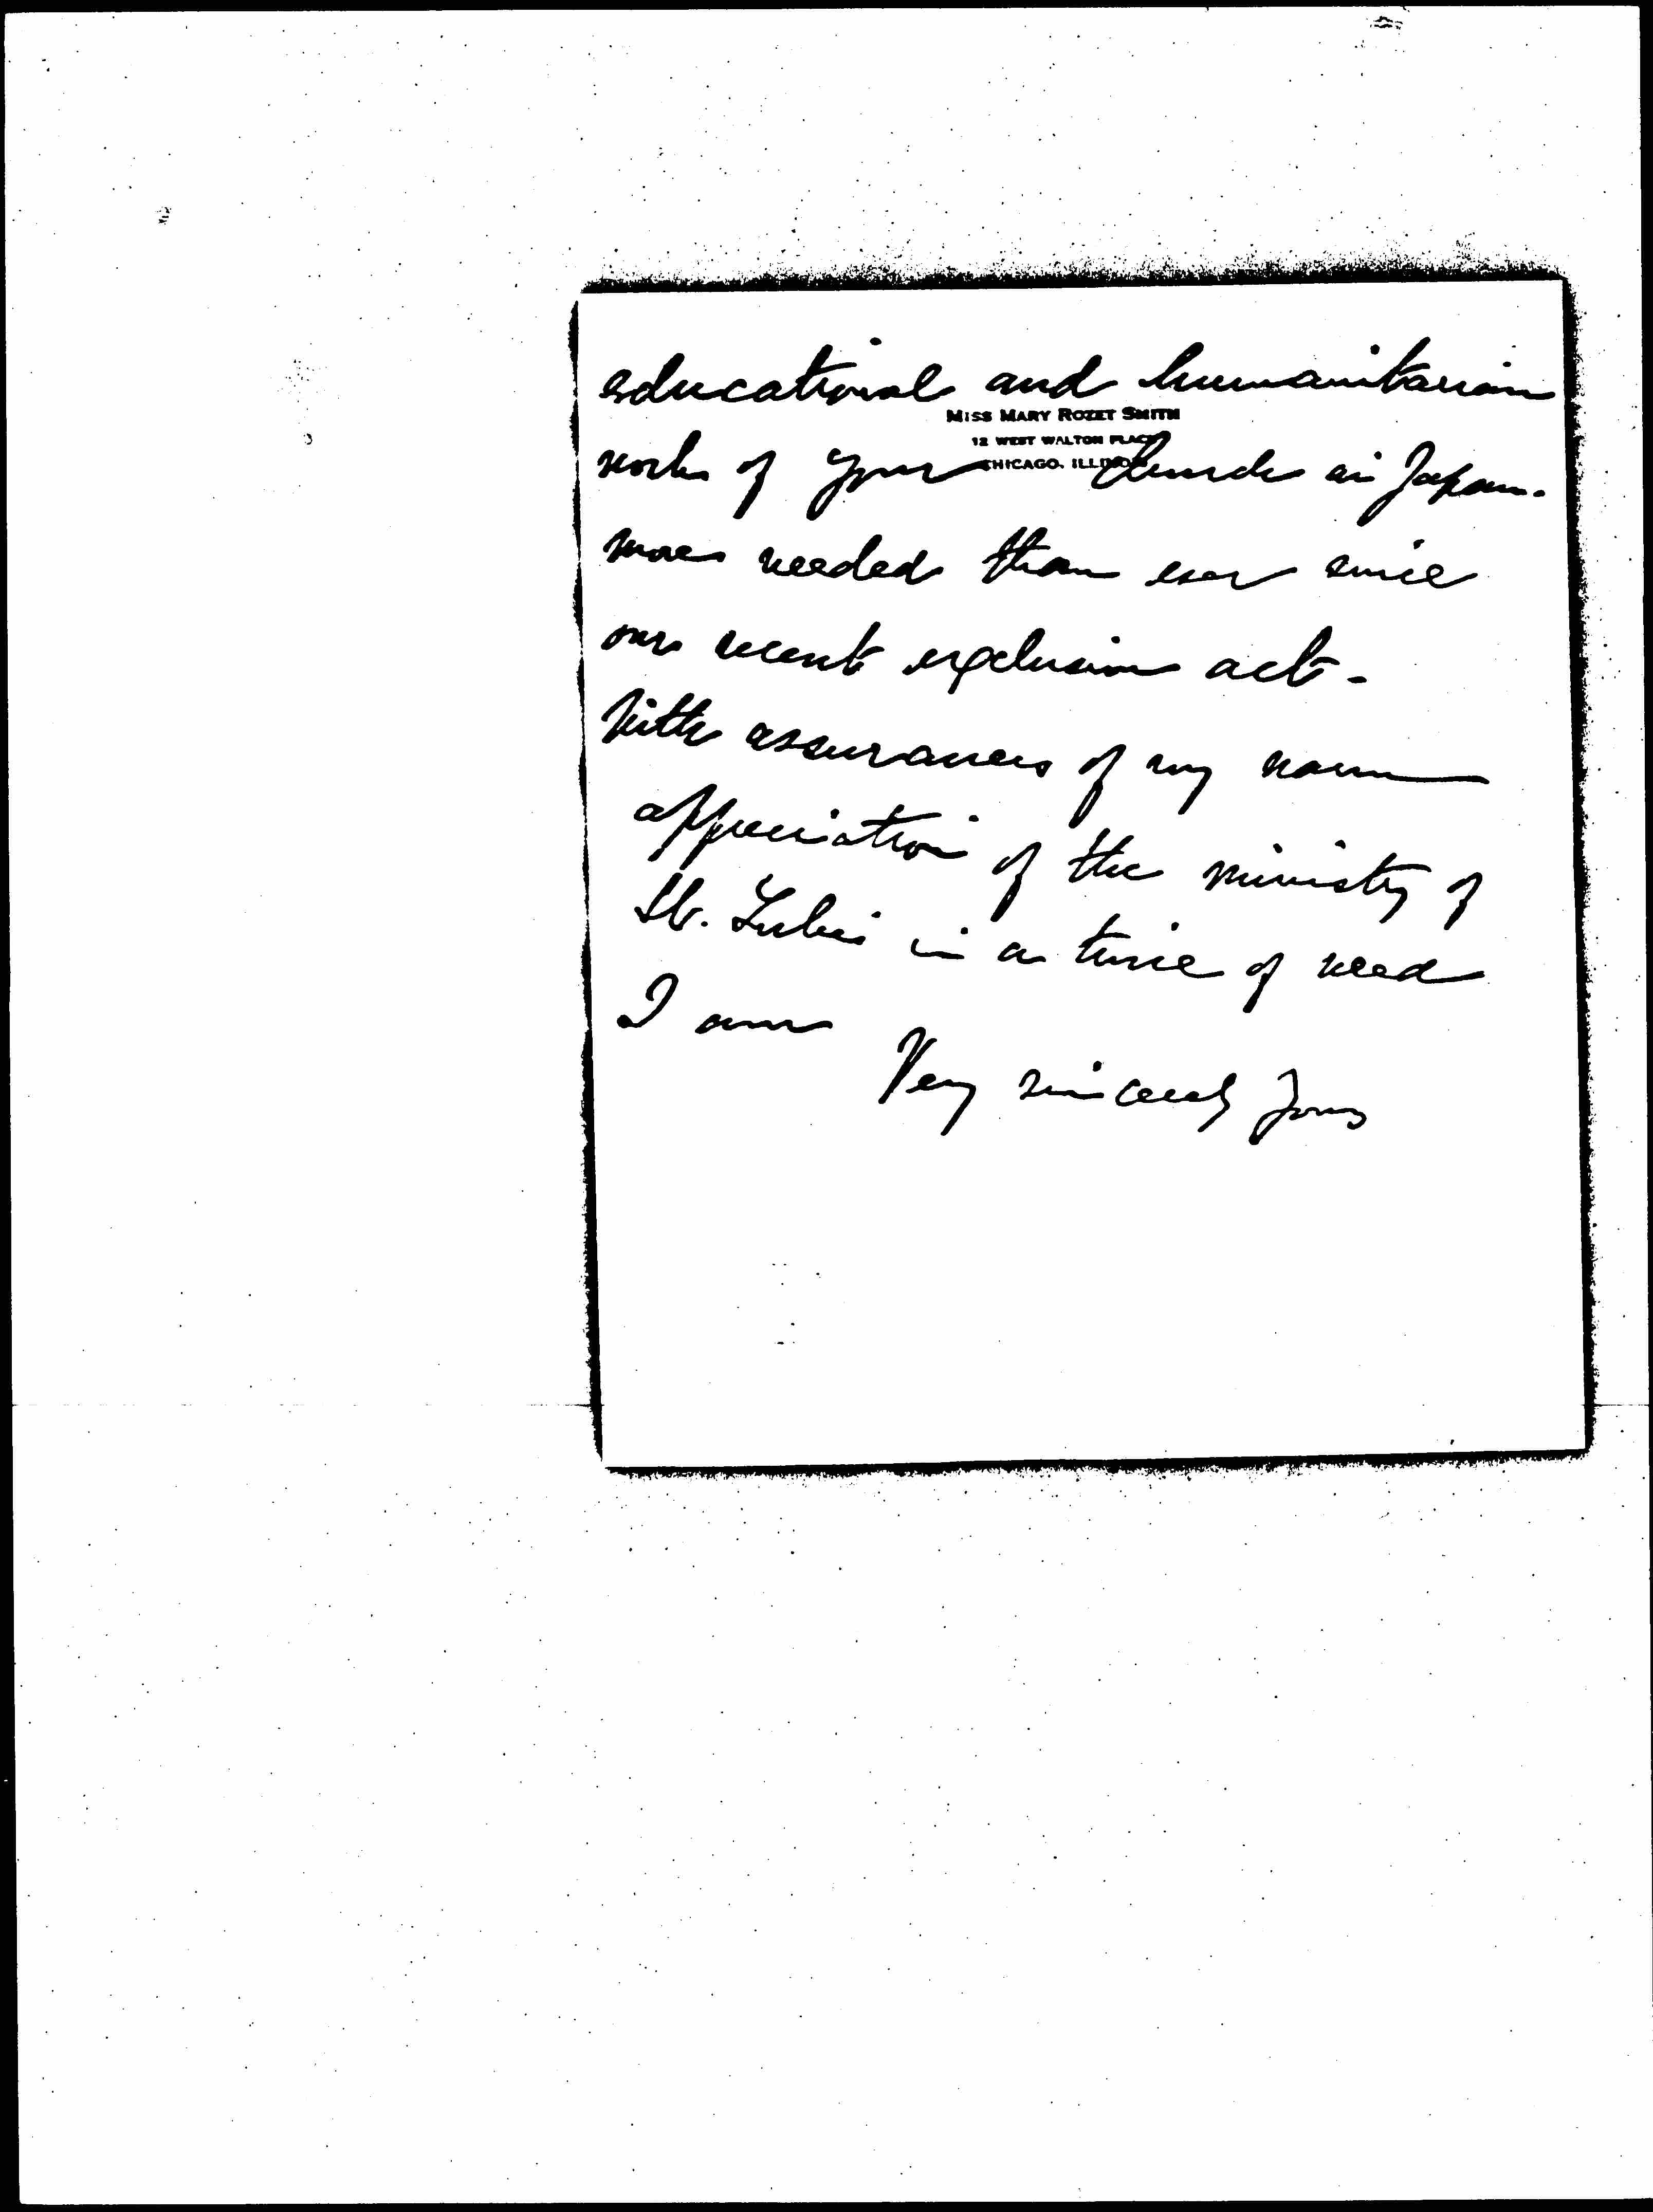 educational and humanitarian
MISS MARY ROZET SMITH
12 WEST WALTON PLACE
CHICAGO, ILLINOIS
work of your Church in Japan.
more needed than ever since
our recent exclusion act-
With assurances of my warm
appreciation of the ministry of
St. Luke's in a time of need
I am
Very sincerely yours